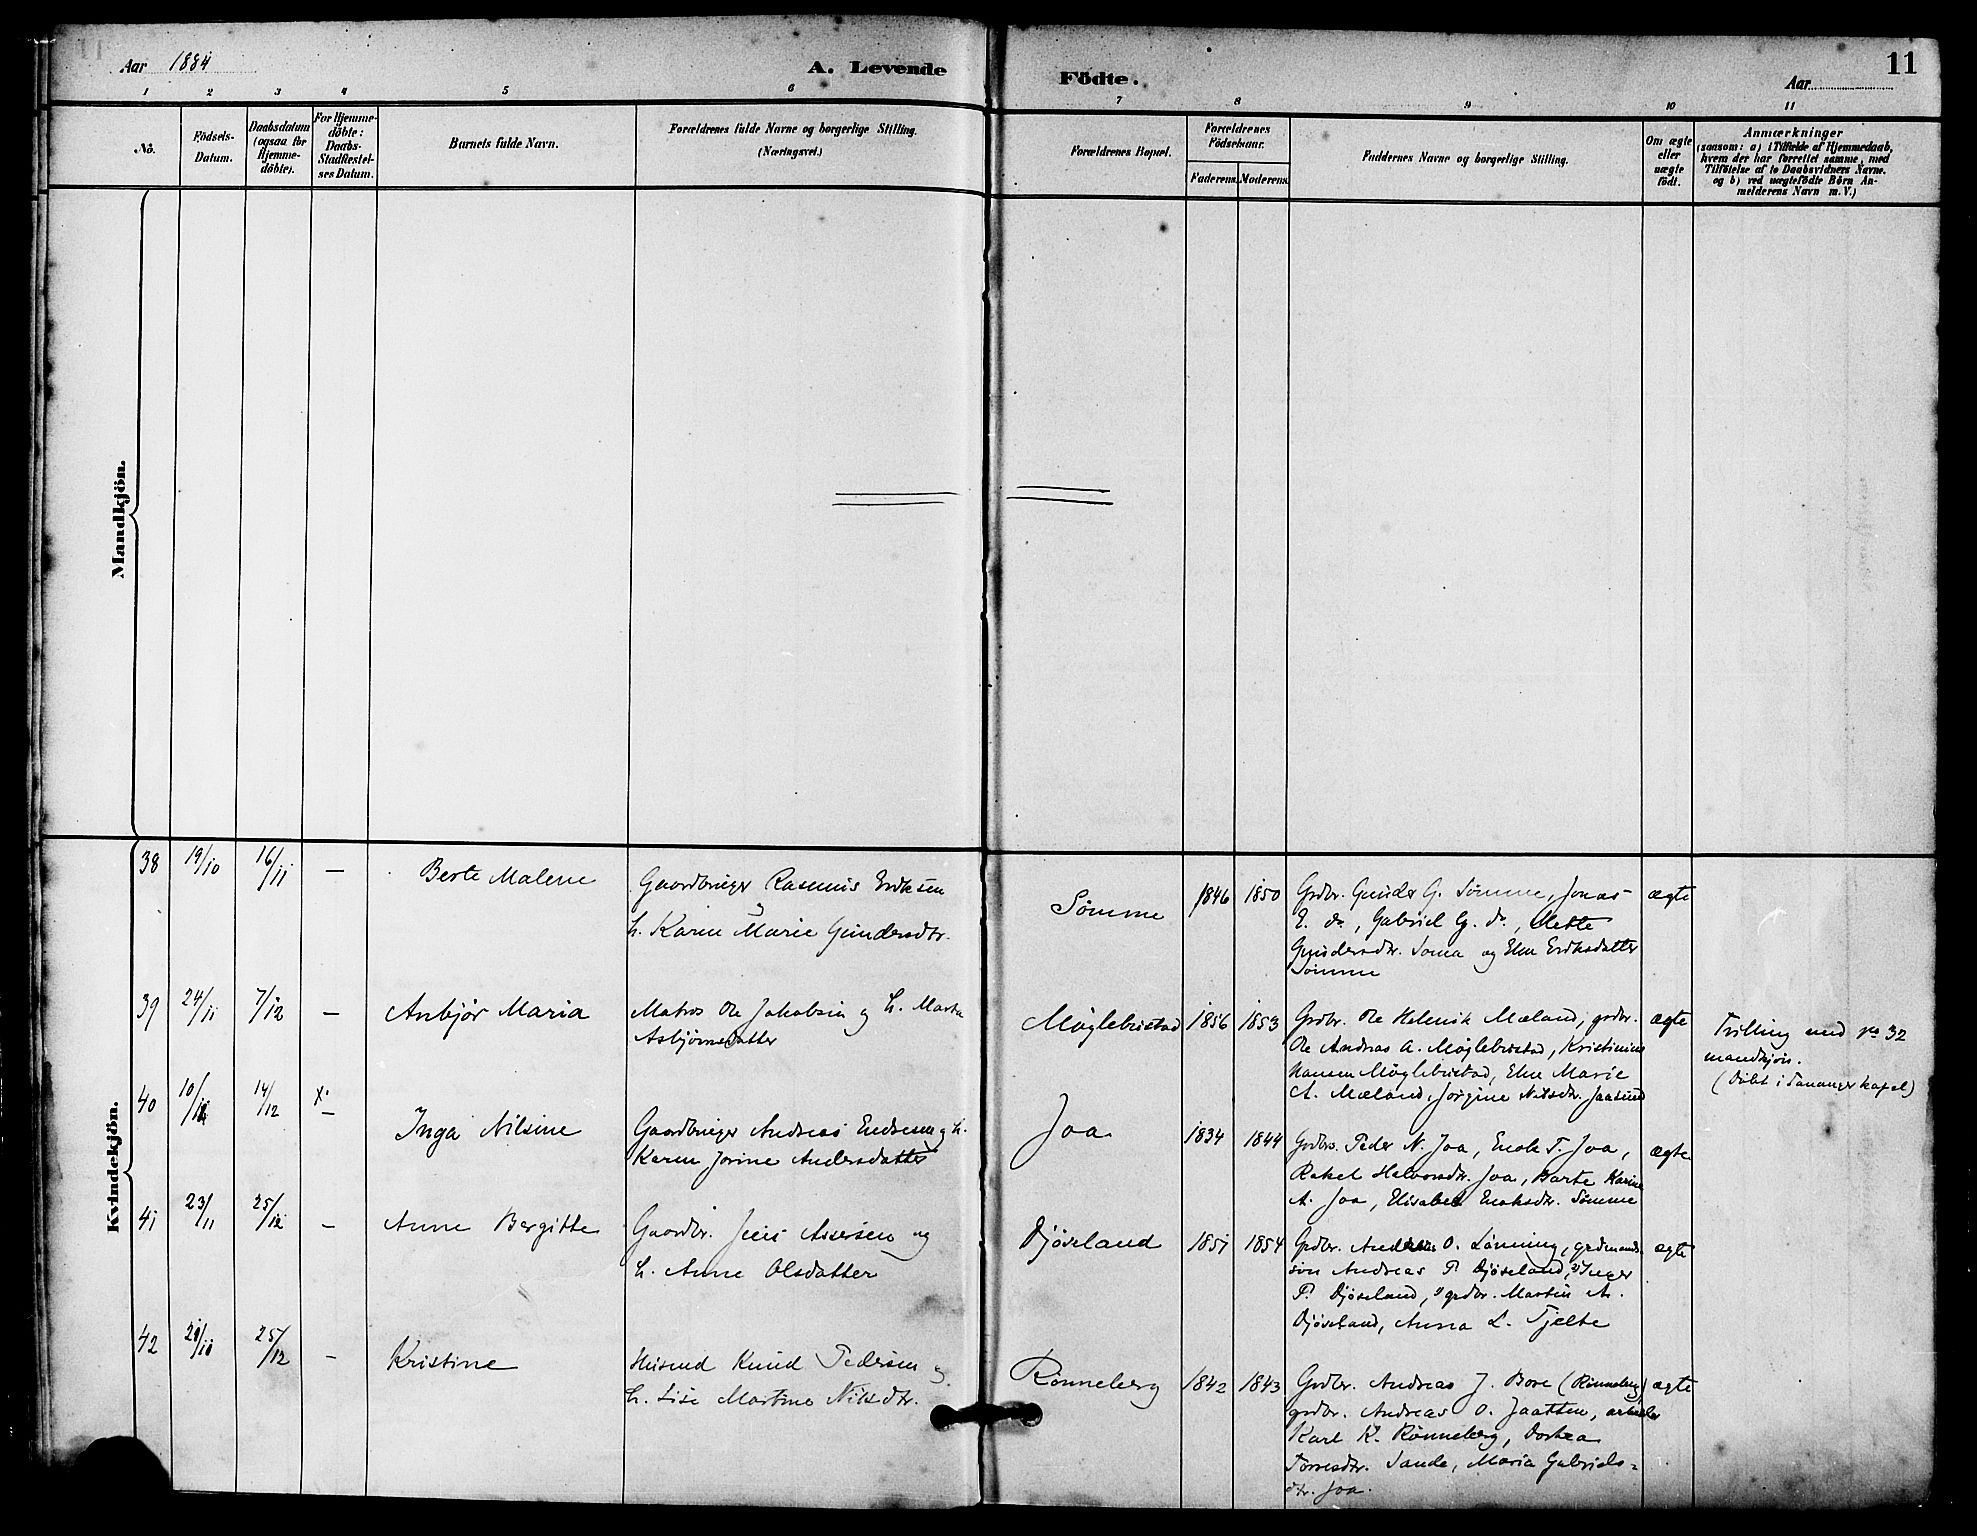 Aar 1884
A. Levende
Födte.
Aar
11
1 2 3 4 5 6 7 8 9 10 11
No.
Födsels-
Datum.
Daabsdatum
(ogsaa for
Hjemme-
döbte).
For Hjemme-
döbte:
Daabs-
Stadfæstel-
ses Datum.
Barnets fulde Navn.
Forældrenes fulde Navne og borgerlige Stilling.
(Næringsvei.)
Forældrenes Bopæl.
Forældrenes
Födselsaar.
Faderens.
Moderens.
Faddernes Navne og borgerlige Stilling.
Om ægte
eller
uægte
født.
Anmærkninger
(saasom: a) i Tilfælde af Hjemmedaab,
hvem der har forrettet samme, med
Tilföielse af to Daabsvidners Navne.
og b) ved uægtefödte Börn An-
melderens Navn m.V.)
Mandkjön.
Kvindekjön.
38 19/10 16/11 —
Berte Malene
Gaardbruger Rasmus Eriksen
og
h. Karen Marie Gundersdtr.
Sømme
1846 1850
Grdbr. Gunder G. Sømme, Jonas
E. do, Gabriel G. do, Mette
Gundersdtr. Soma og Elen Eriksdatter
Sømme
ægte
39 24/11 7/12 —
Anbjør Maria
Matros Ole Jakobsen og h. Marta
Asbjørnsdatter
Møglebustad
1856 1853
Grdbr. Ole Helmik Mæland, grdbr.
Ole Andreas A. Møglebustad, Kristinius
Hansen Møglebustad, Elen Marie
A. Mæland, Jørgine Nilsdtr. Jaasund
ægte
Tvilling med no 32
mandkjön.
(Døbt i Tananger kapel)
40 14/12 x —
Inga Nilsine
Gaardbruger Andreas Endresen og h.
Karen Jorine Andersdatter
Joa
1834 1844
Grdbr. Peder N. Joa, Enok T. Joa,
Rakel Halvorsdtr. Joa, Barte Karine
A. Joa, Elisabet Enoksdtr. Sømme
ægte
41 23/11 25/12 —
Anne Bergitte
Gaardbr. Jens Assersen og
h. Anne Olsdatter
Djøseland
1851 1854
Grdbr. Andreas O. Lønning, grdmands-
søn Andreas P. Djøseland, Inger
P. Djøseland, grdbr. Martin A.
Djøseland, Anna L. Tjelte
ægte
42 25/12 —
Kristine
Husmd Knud Pedersen og
h. Lise Martine Nilsdtr.
Rønneberg
1842 1843
Grdbr. Andreas J. Bore (Rønneberg)
grdbr. Andreas O. Jaatten, arbeider
Karl K. Rønneberg, Dortea
Torresdtr. Sande, Maria Gabriels-
dtr. Joa.
ægte